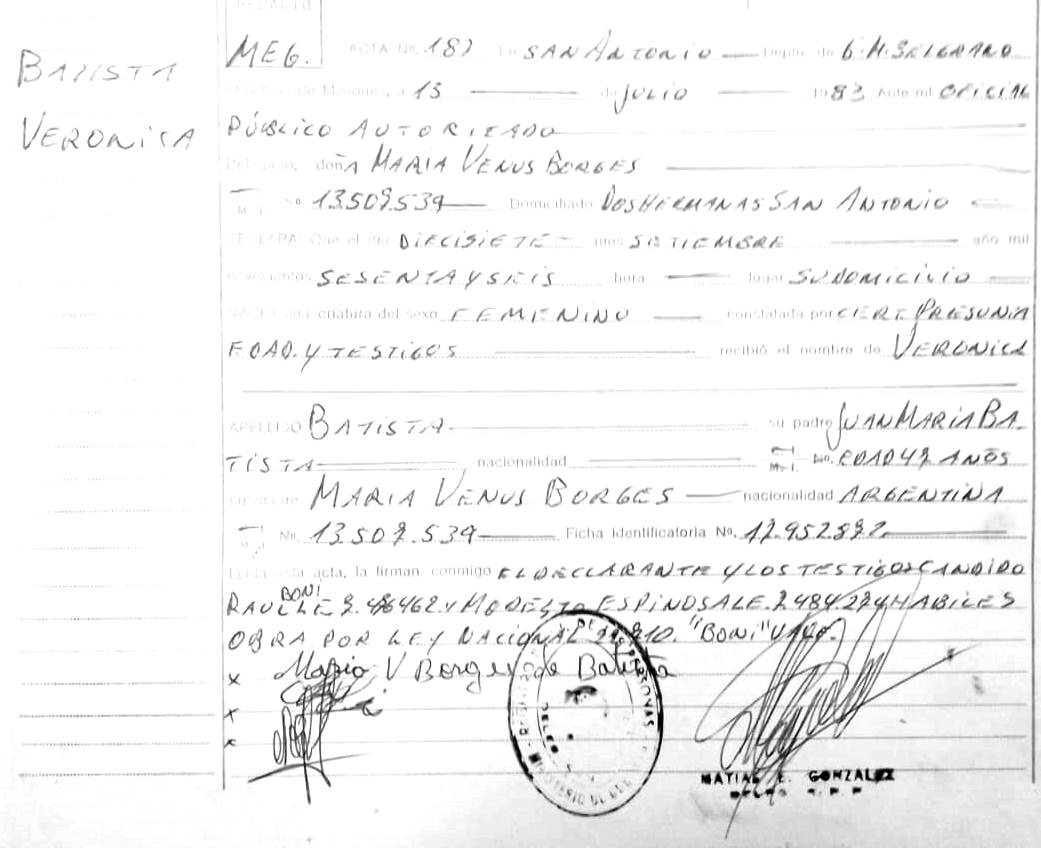 BATISTA
VERONICA
MEG. ACTA No. 187 En SAN ANTONIO Depto. de G. M. BELGRANO
Provincia de Misiones, a 13 de JULIO 1983 Ante mí OFICIAL
PÚBLICO AUTORIZADO
Delegado, doñA MARIA VENUS BORGES
M. I. No 13.509.539 Domiciliado DOS HERMANAS SAN ANTONIO
DECLARA: Que el día DIECISIETE mes SETIEMBRE año mil
novecientos SESENTA Y SEIS hora lugar SU DOMICILIO
NACIO una criatura del sexo FEMENINO constatada por CERT. PRESUNTA
EDAD. Y TESTIGOS recibió el nombre de VERONICA
APELLIDO BATISTA su padre JUAN MARIA BA-
TISTA nacionalidad M. I. No. EDAD 47 AÑOS
su madre MARIA VENUS BORGES nacionalidad ARGENTINA
M. I. No. 13.509.539 Ficha identificatoria No.
Leída esta acta, la firman conmigo EL DECLARANTE Y LOS TESTIGOS CANDIDO
BONI
RAUL LE Y MODESTO ESPINOSA LE. HABILES
OBRA POR LEY NACIONAL "BONI" VALE.
x Maria V Borges de Batista
x
x
MATIAS E. GONZALEZ